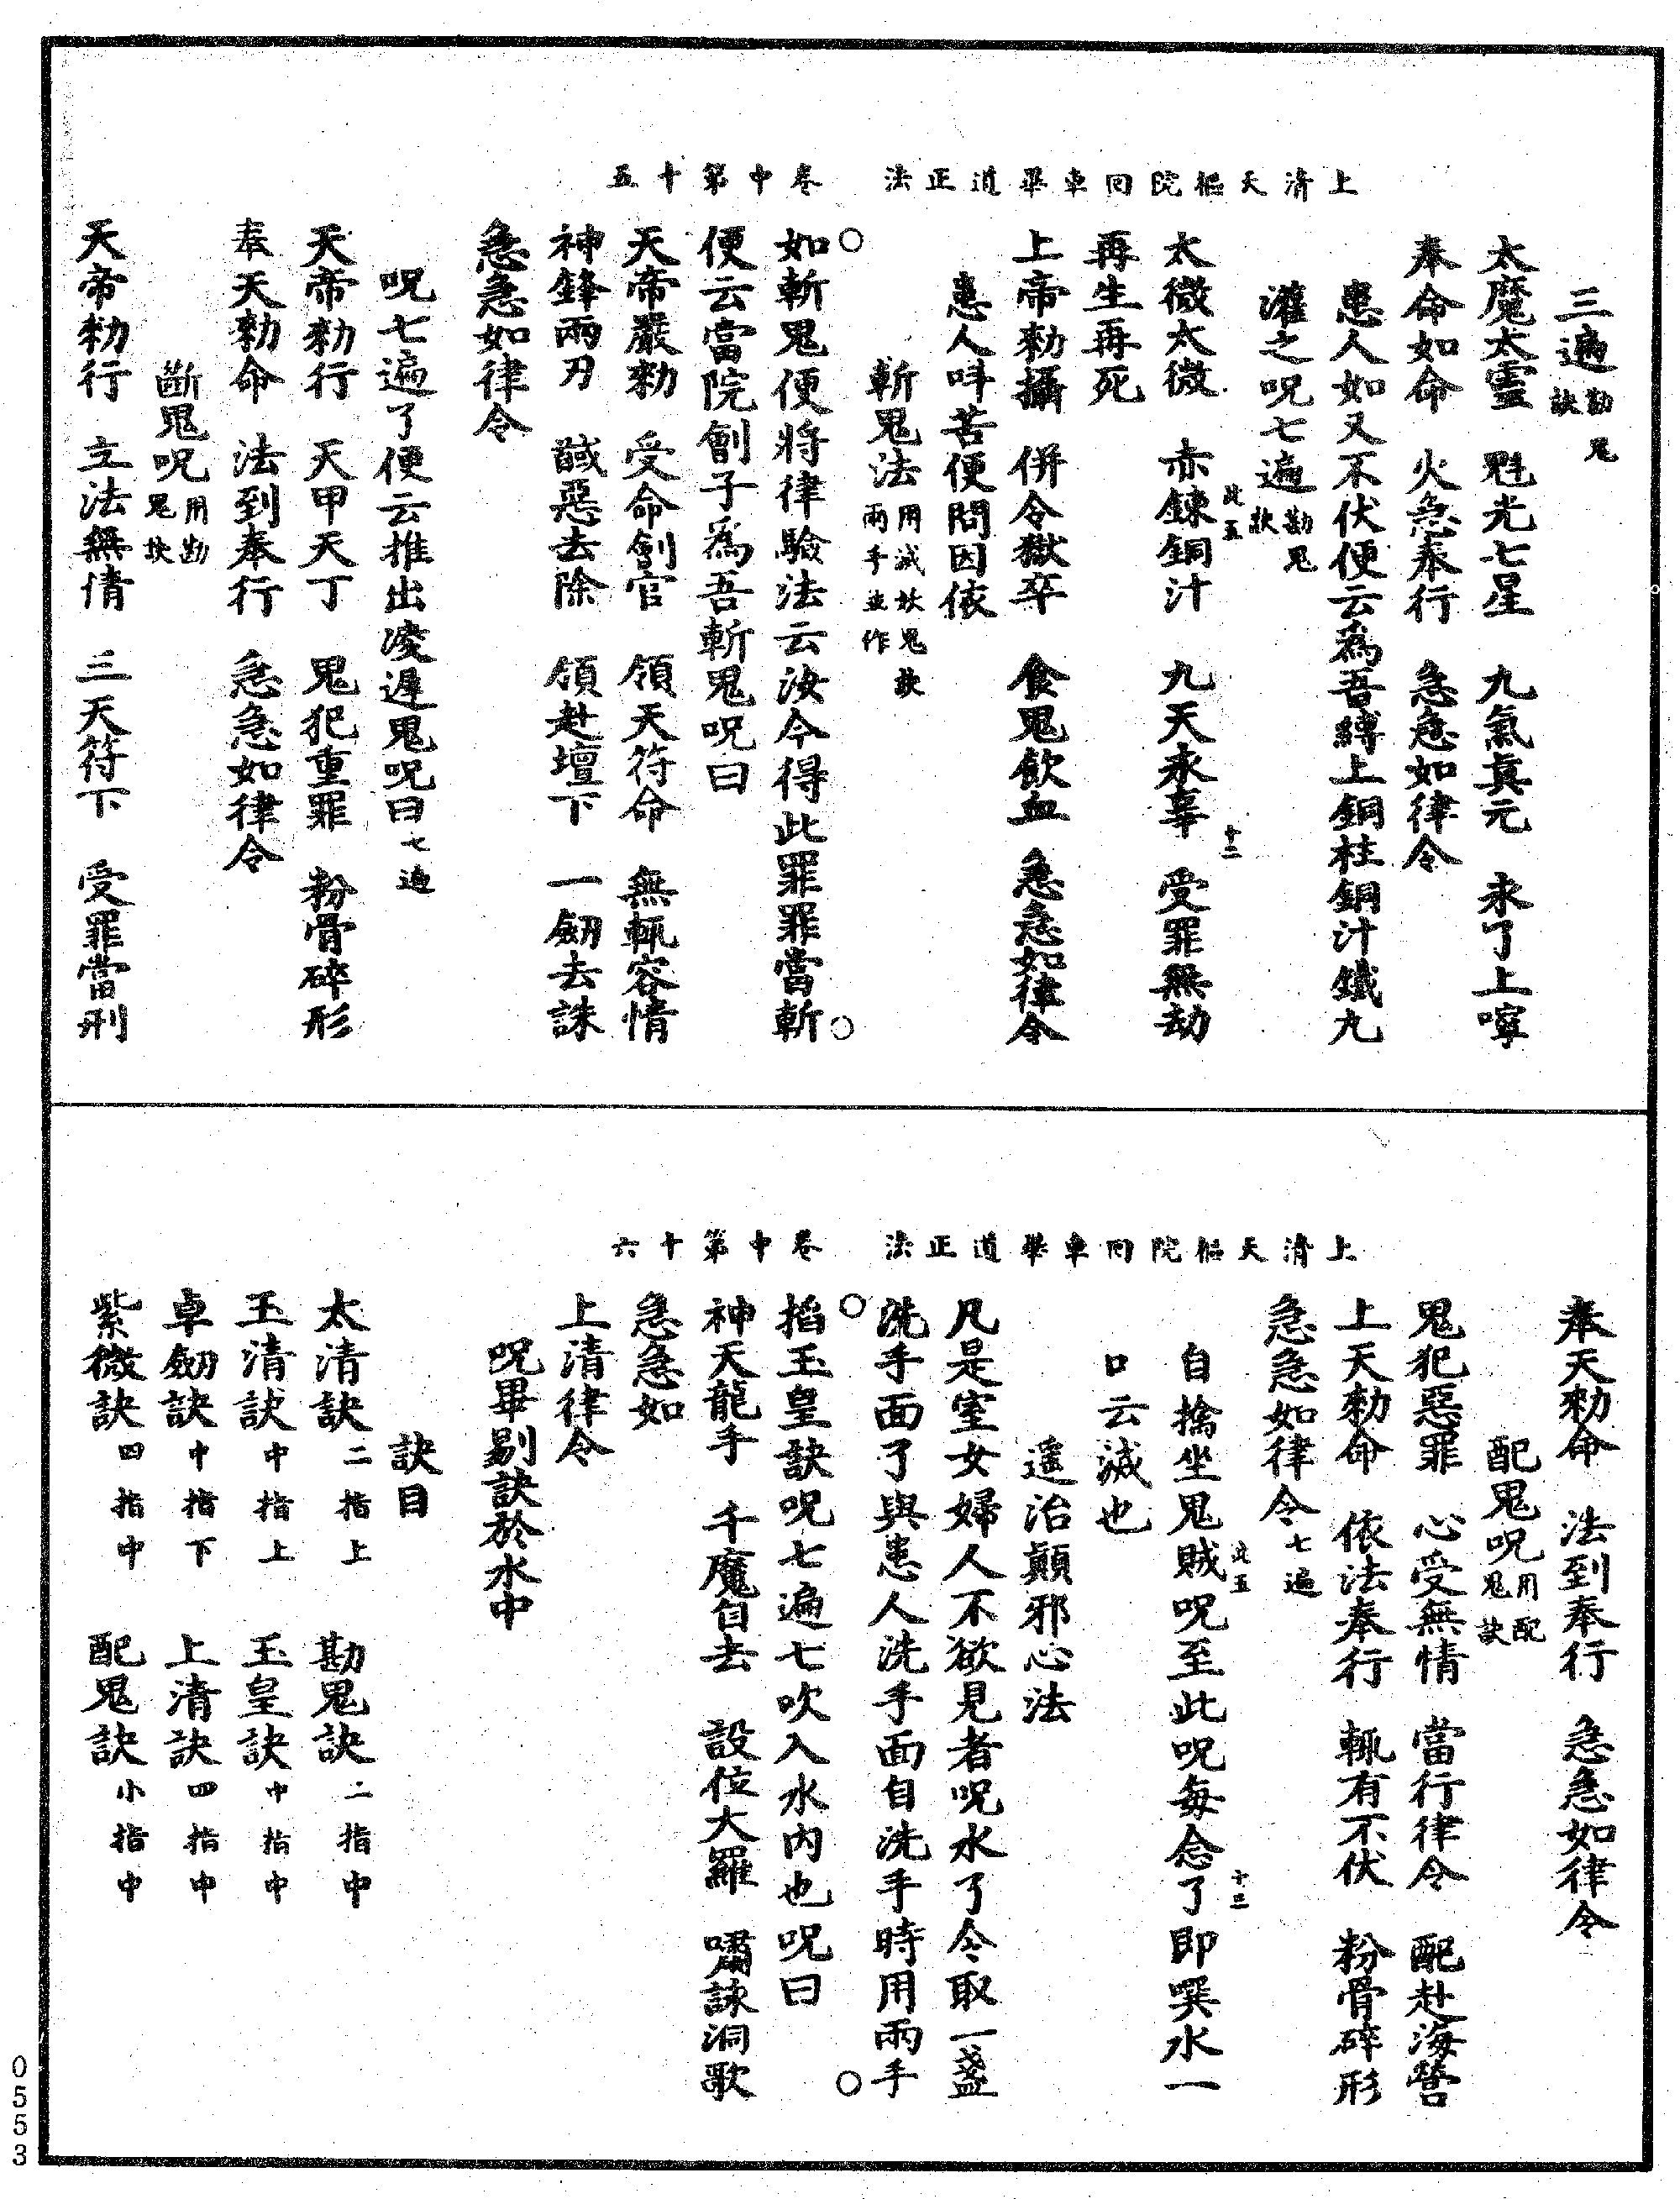 上清天樞院回車畢道正法　卷中第十五
三遍勘鬼訣
太魔太靈　魁光七星　九氣真元　永了上嚀
奉命如命　火急奉行　急急如律令
患人如又不伏便云為吾縛上銅柱銅汁鐵丸
灌之呪七遍勘鬼訣
此五　十二
太微太微　赤鍊銅汁　九天永辜　受罪無劫
再生再死
上帝勑攝　併令獄卒　食鬼飲血　急急如律令
患人呌苦便問因依
斬鬼法用滅妖鬼訣兩手並作
如斬鬼便將律驗法云汝今得此罪罪當斬
便云當院劊子為吾斬鬼呪曰
天帝嚴勑　受命劊官　領天符命　無輒容情
神鋒兩刃　馘惡去除　領赴壇下　一劒去誅
急急如律令
呪七遍了便云推出凌遲鬼呪曰七遍
天帝勑行　天甲天丁　鬼犯重罪　粉骨碎形
奉天勑命　法到奉行　急急如律令
斷鬼呪用勘鬼訣
天帝勑行　立法無情　三天符下　受罪當刑
上清天樞院回車畢道正法　卷中第十六
奉天勑命　法到奉行　急急如律令
配鬼呪用配鬼訣
鬼犯惡罪　心受無情　當行律令　配赴海營
上天勑命　依法奉行　輒有不伏　粉骨碎形
急急如律令七遍
此五　十三
自擒坐鬼賊呪至此呪每念了即噀水一
口云滅也
遥治顛邪心法
凡是室女婦人不欲見者呪水了令取一盞
洗手面了與患人洗手面自洗手時用兩手
搯玉皇訣呪七遍七吹入水内也呪曰
神天龍手　千魔自去　設位大羅　嘯詠洞歌
急急如
上清律令
呪畢剔訣於水中
訣目
太清訣二指上　勘鬼訣二指中
玉清訣中指上　玉皇訣中指中
卓劒訣中指下　上清訣四指中
紫微訣四指中　配鬼訣小指中
0553